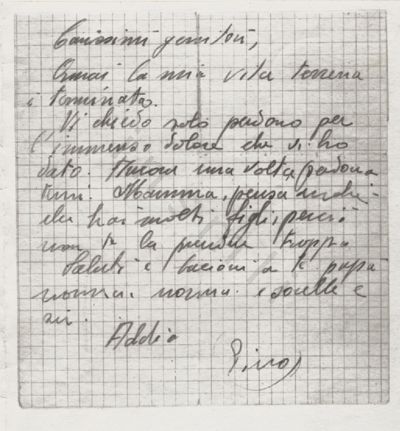 Carissimi genitori,
Ormai la mia vita terrena
è terminata.
Vi chiedo solo perdono per
l'immenso dolore che vi ho
dato. Ancora una volta perdona
temi. Mamma, pensa
che hai molti figli, perciò
non te la prendere troppo
Saluti e bacioni a te papà
nonna, nonna e sorelle e
zii.
Addio
Pino